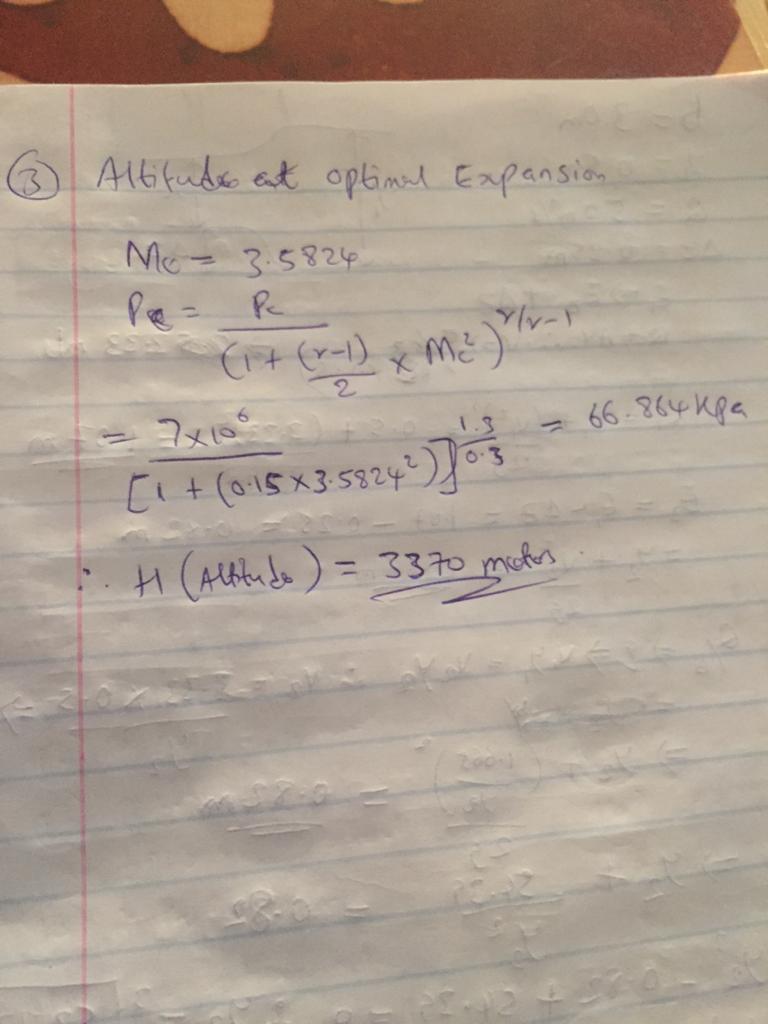 ③ Altitude at optimal Expansion
Me = 3.5824
Pe = Pc / (1 + (r-1)/2 × Me²)^r/r-1
= 7×10⁶ / [1 + (0.15×3.5824²)]^1.3/0.3 = 66.864 kpa
∴ H (Altitude) = 3370 meters